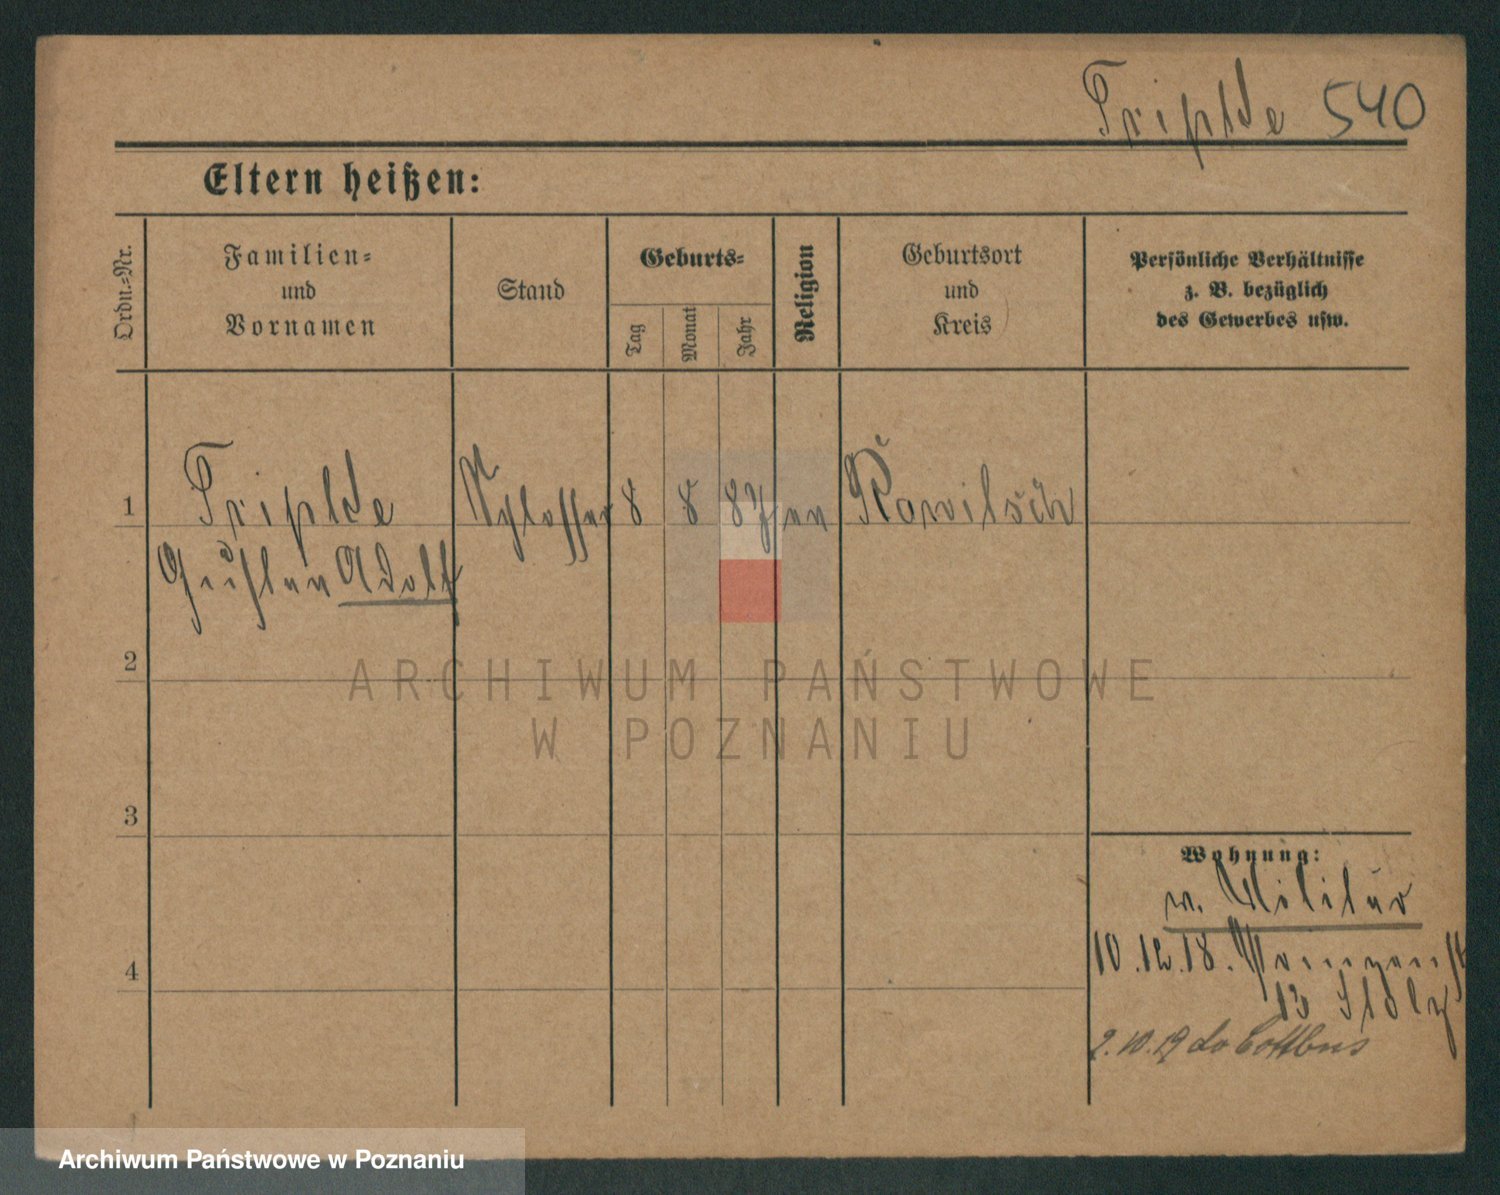 Tripke 540
Eltern heißen:
Ordn.-Nr.
Familien-
und
Vornamen
Stand
Geburts-
Tag
Monat
Jahr
Religion
Geburtsort
und
Kreis
Persönliche Verhältnisse
z. B. bezüglich
des Gewerbes usw.
1
Tripke Schlosser 8 8 87 ev Rawitsch
Adolf
2
ARCHIWUM PAŃSTWOWE
W POZNANIU
3
Wohnung:
Militär
4
10.12.18.
13
2.10.19 Cottbus
Archiwum Państwowe w Poznaniu